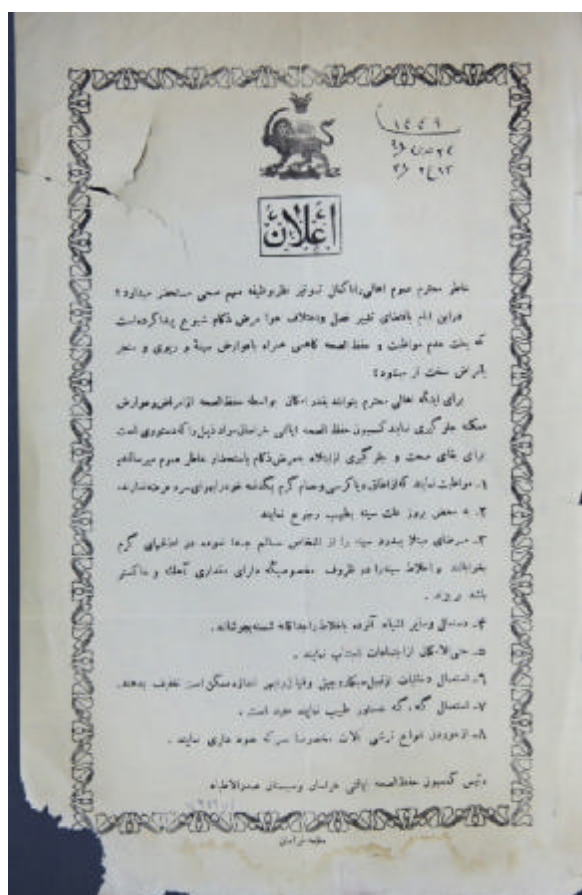 ۱۴۰۴۹
اعلان
خاطر محترم عموم اهالی را با کمال توقیر نظر بوظیفه مهم صحی مستحضر میدارد؛
در این ایام باقتضای تغییر فصل و اختلاف هوا مرض زکام شیوع پیدا کرده است
که بعلت عدم مواظبت و حفظ الصحه گاهی همراه با عوارض سینهٔ و ریوی و منجر
بامراض سخت تر میدارد؛
برای اینکه اهالی محترم بتوانند بقدر امکان بواسطه حفظ الصحه از مرض و عوارض
ممکنه جلوگیری نمایند کمیسیون حفظ الصحه ایالتی خراسان مواد ذیل را که دستوری است
برای بقای صحت و جلوگیری از ابتلاء بمرض زکام باستحضار خاطر عموم میرساند؛
۱ـ مواظبت نمایند که از اطاق و یا کرسی و حمام گرم یکدفعه خود را بهوای سرد عرضه ندارند،
۲ـ به محض بروز علت سینه بطبیب رجوع نمایند
۳ـ مرضای مبتلا بدرد سینه را از اشخاص سالم جدا نموده در اطاقهای گرم
بخوابانند و اخلاط سینه را در ظروف مخصوصیکه دارای مقداری آهك و خاکستر
باشد بریزند .
۴ـ دستمال و سایر اشیاء آلوده باخلاط را جداگانه شسته بجوشانند.
۵ـ حتی الامکان از اجتماعات اجتناب نمایند .
۶ـ استعمال دخانیات از قبیل سیگار و چپق و قلیان را بهر اندازه ممکن است تخفیف بدهند.
۷ـ استعمال گنه گنه بدستور طبیب نمایند مفید است .
۸ـ از خوردن انواع ترشی آلات مخصوصا سرکه خود داری نمایند .
رئیس کمسیون حفظ الصحه ایالتی خراسان و سیستان صدرالاطباء
مطبعه خراسان